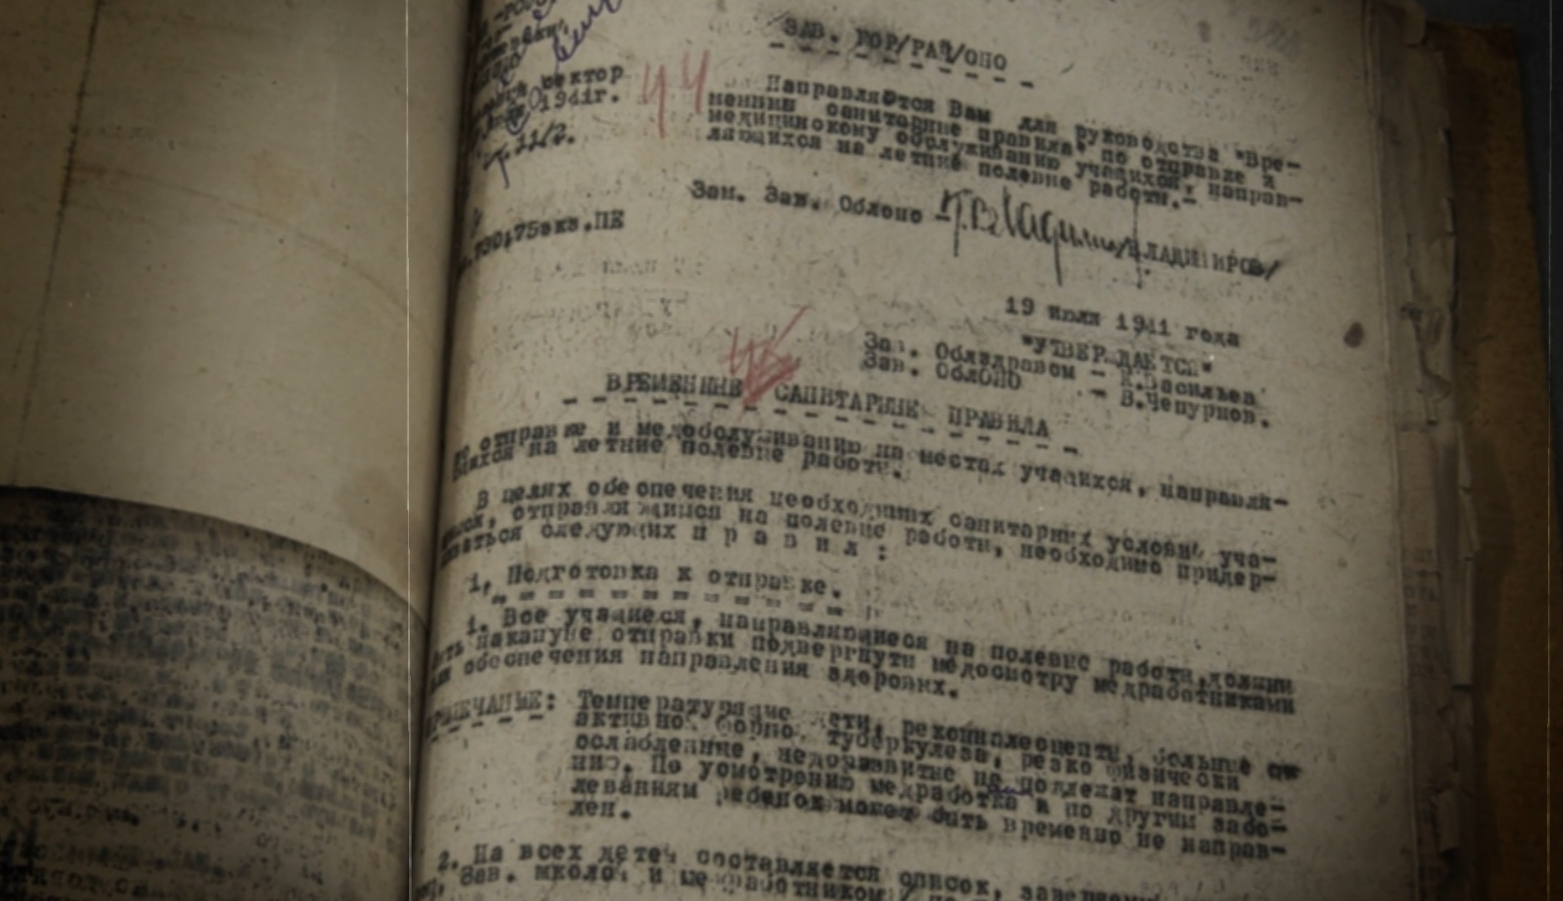 сектор
1941г.
ЗАВ. ГОР/РАЙ/ОНО
Направляются Вам для руководства "Вре-
менные санитарные правила" по отправке и
медицинскому обслуживанию учащихся, направ-
ляющихся на летние полевые работы.-
Зам. Зав. Облоно - /ВЛАДИМИРОВ/
75экз.ПЕ
44
19 июля 1941 года
"УТВЕРЖДАЕТСЯ"
Зав. Облздравом - К.Васильев
Зав. ОблОНО - В.Чепурнов.
ВРЕМЕННЫЕ САНИТАРНЫЕ ПРАВИЛА
по отправке и медобслуживанию на местах учащихся, направля-
ющихся на летние полевые работы.
В целях обеспечения необходимых санитарных условий уча-
щимся, отправляющимся на полевые работы, необходимо придер-
живаться следующих п р а в и л :
1. Подготовка к отправке.
1. Все учащиеся, направляющиеся на полевые работы, должны
быть накануне отправки подвергнуты медосмотру медработниками
для обеспечения направления здоровых.
ПРИМЕЧАНИЕ: Температурящие дети, реконвалесценты, больные
активной формой туберкулеза, резко физически
ослабленные, недоразвитые не подлежат направле-
нию. По усмотрению медработника и по другим забо-
леваниям ребенок может быть временно не направ-
лен.
2. На всех детей составляется список,
Зав. школой и медработником